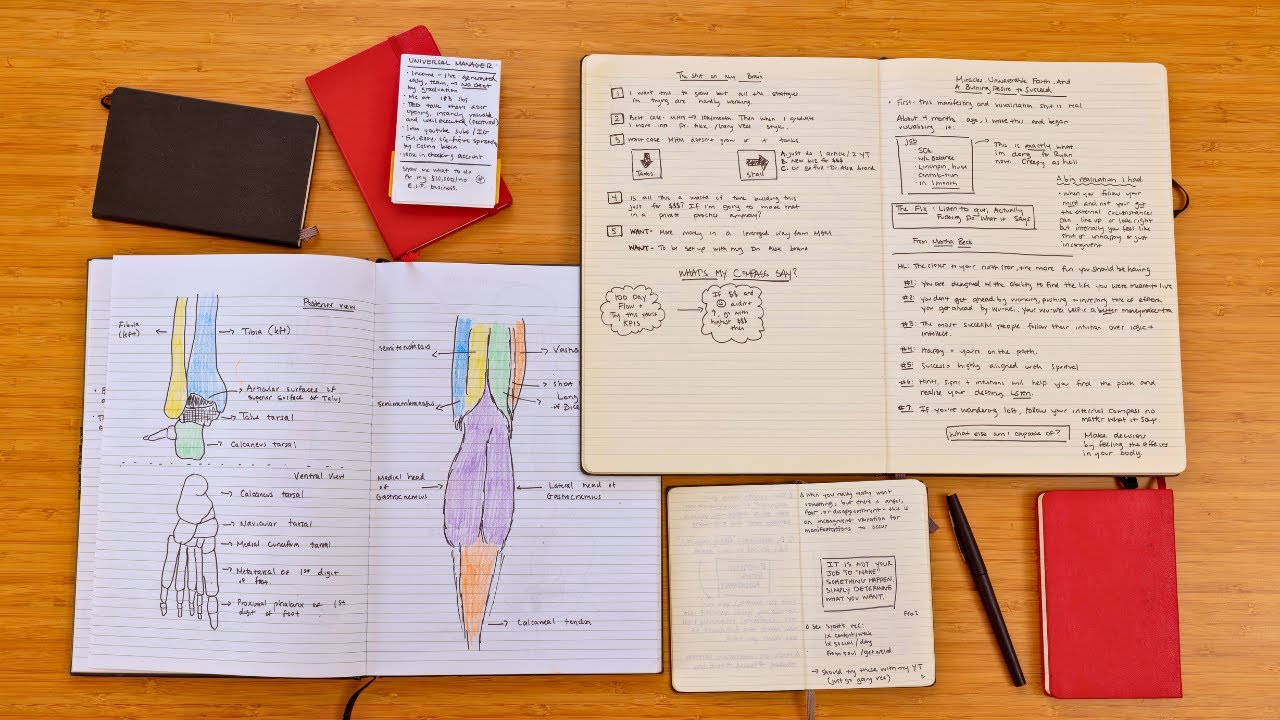 UNIVERSAL MANAGER
by graduation
Me at 188 lbs
opening, insanely valuable
by Celine being
Show me what to do
w/ my $10,000/mo
business.
The Shit on My Brain
1 I want this to grow but all the strategies
I'm trying are hardly working.
2 Then when I graduate
I move into Dr. Alex / Long Vees style.
3 Worst-case MHM doesn't grow or it tanks
Tanks
Stall
A: Just do 1 article / 2 YT
B: new biz for $$$
C: Or go full-Dr. Alex brand
4 Is all this a waste of time building this
just for $$$? If I'm going to make that
in a private practice anyway?
5 WANT - More money in a leveraged way from MHM
WANT - To be set-up with my Dr. Alex brand
WHAT'S MY COMPASS SAY?
100 DAY
Flow +
Try this year's
KPIs
If $$ and
didn't
go with
highest $$$
then
Miracles, Unwaverable Faith, And
A Burning Desire to Succeed
• First - this manifesting and visualization shit is real
About 4 months ago, I wrote this and began
visualizing it:
JOB
W/L Balance
Contribution
in 1 month
This is exactly what
I'm doing for Ryan
now. Creepy as hell
A big realization I had
• when you follow your
mind and not your gut
the external circumstances
can line up or look right
but internally you feel like
shit or unhappy or just
incongruent
The Fix: Listen to gut, Actually
Fucking Do What it Says
From Martha Beck
ML: The closer to your north star, the more fun you should be having
#1: You are designed w/ the ability to find the life you were meant to live
#2: You don't get ahead by working, pushing, mimicking
you get ahead by
#3: The most successful people follow their intuition over logic +
intellect.
#4: Happy = you're on the path.
#5: Success = highly aligned with spirit
#6: Hints, signs + intuitions will help you find the path and
realize your destiny. Listen.
#7: If you're wandering left, follow your internal compass no
matter what it says
What else am I capable of?
Make decisions
by feeling the effects
in your body.
Posterior view
Fibula
(left)
Tibia (left)
Articular surfaces of
superior surface of Talus
Talus tarsal
Calcaneus tarsal
Ventral view
Calcaneus tarsal
Navicular tarsal
Medial cuneiform tarsal
Metatarsal of 1st digit
of foot
Proximal phalanx of 1st
digit of foot
semitendinosus
semimembranosus
Vastus
Short
Long
of Bice
Medial head
of
Gastrocnemius
Lateral head of
Gastrocnemius
Calcaneal tendon
When you really really want
something, but there is anger,
fear, or disappointment - this is
an incongruent vibration for
manifestations to occur
IT IS NOT YOUR
JOB TO "MAKE"
SOMETHING HAPPEN.
SIMPLY DETERMINE
WHAT YOU WANT.
1x content/week
1x social / day
From soul
→ Should try these with my YT
(just go going vees)